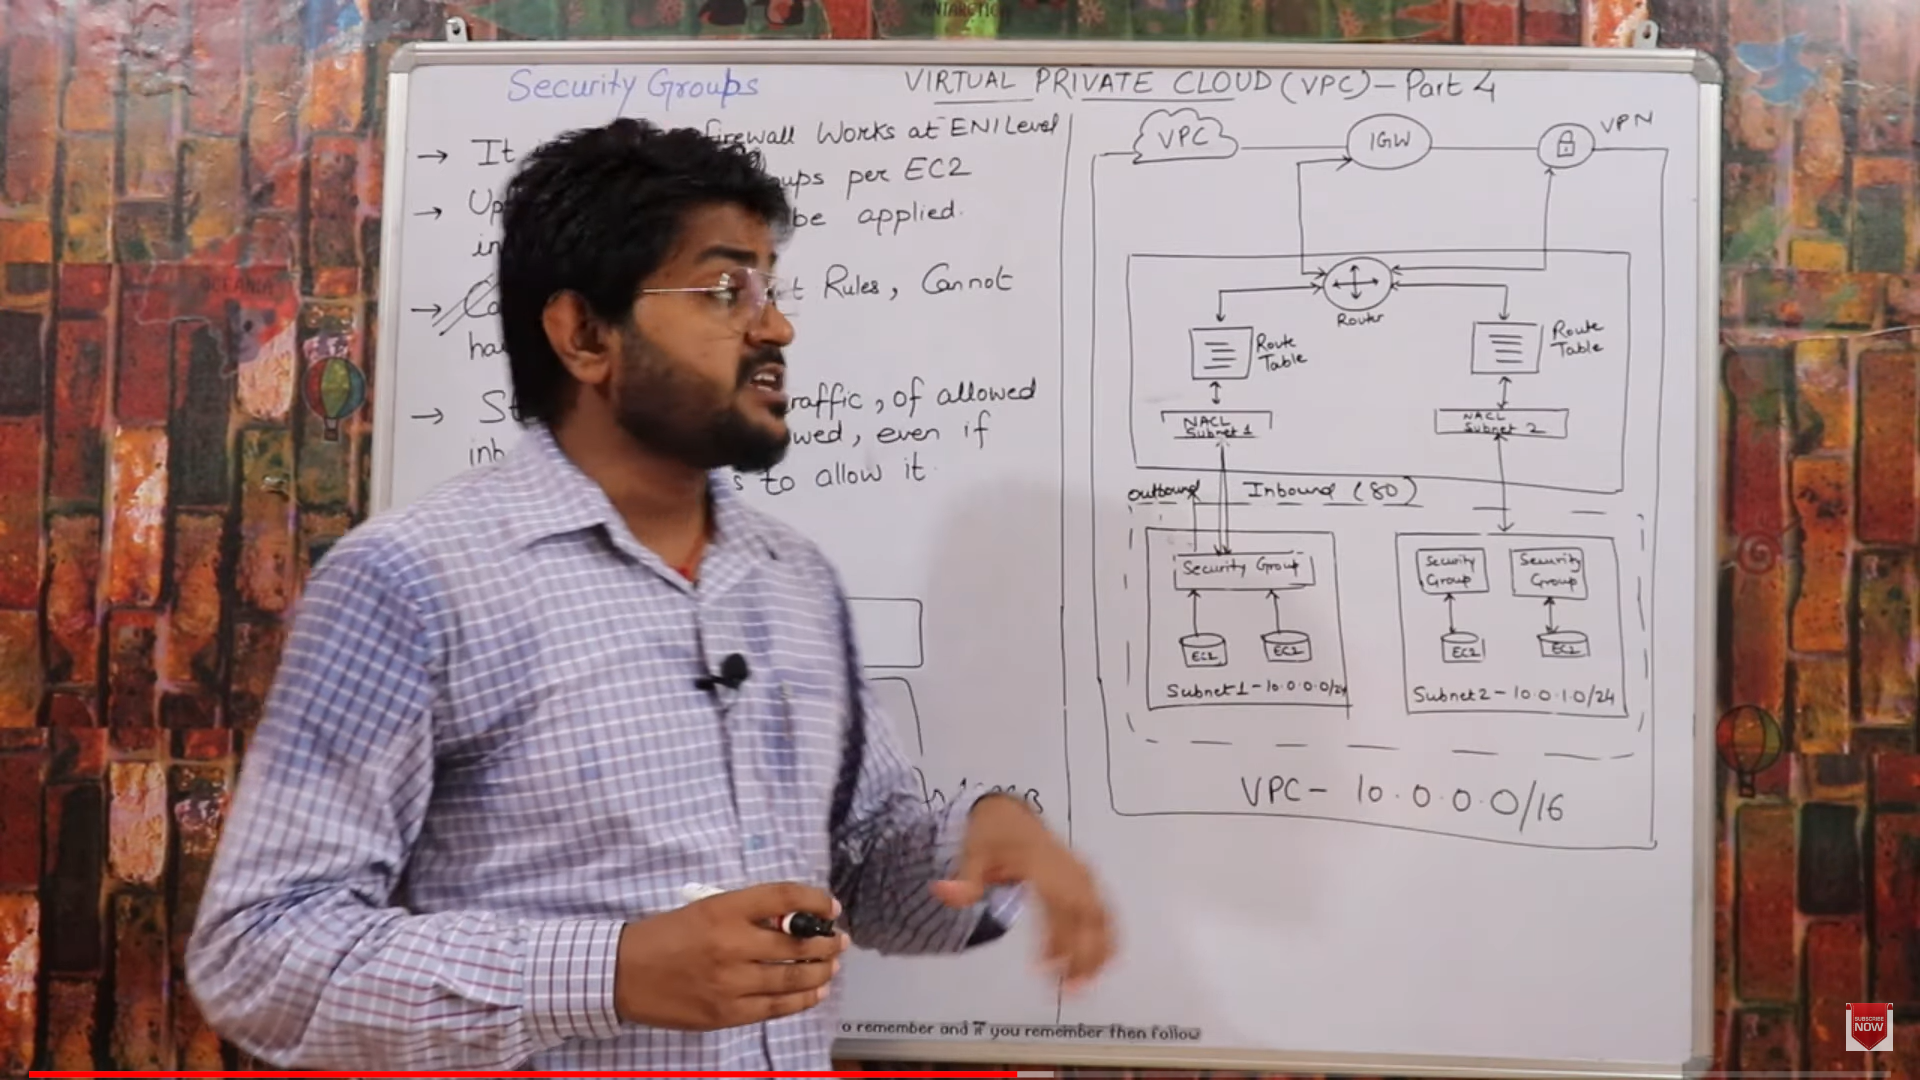 ANTARCTICA
OCEANIA
Security Groups
VIRTUAL PRIVATE CLOUD (VPC) - Part 4
→ It firewall Works at ENI Level
→ Up ups per EC2
in be applied.
→ Ca t Rules, Cannot
ha
→ St raffic, of allowed
inb wed, even if
s to allow it.
VPC
IGW
VPN
Router
Route
Table
Route
Table
NACL
Subnet 1
NACL
Subnet 2
outbound
Inbound (80)
Security Group
Security
Group
Security
Group
EC2
EC2
EC2
EC2
Subnet 1 - 10.0.0.0/24
Subnet 2 - 10.0.1.0/24
VPC - 10.0.0.0/16
o remember and if you remember then follow
SUBSCRIBE
NOW